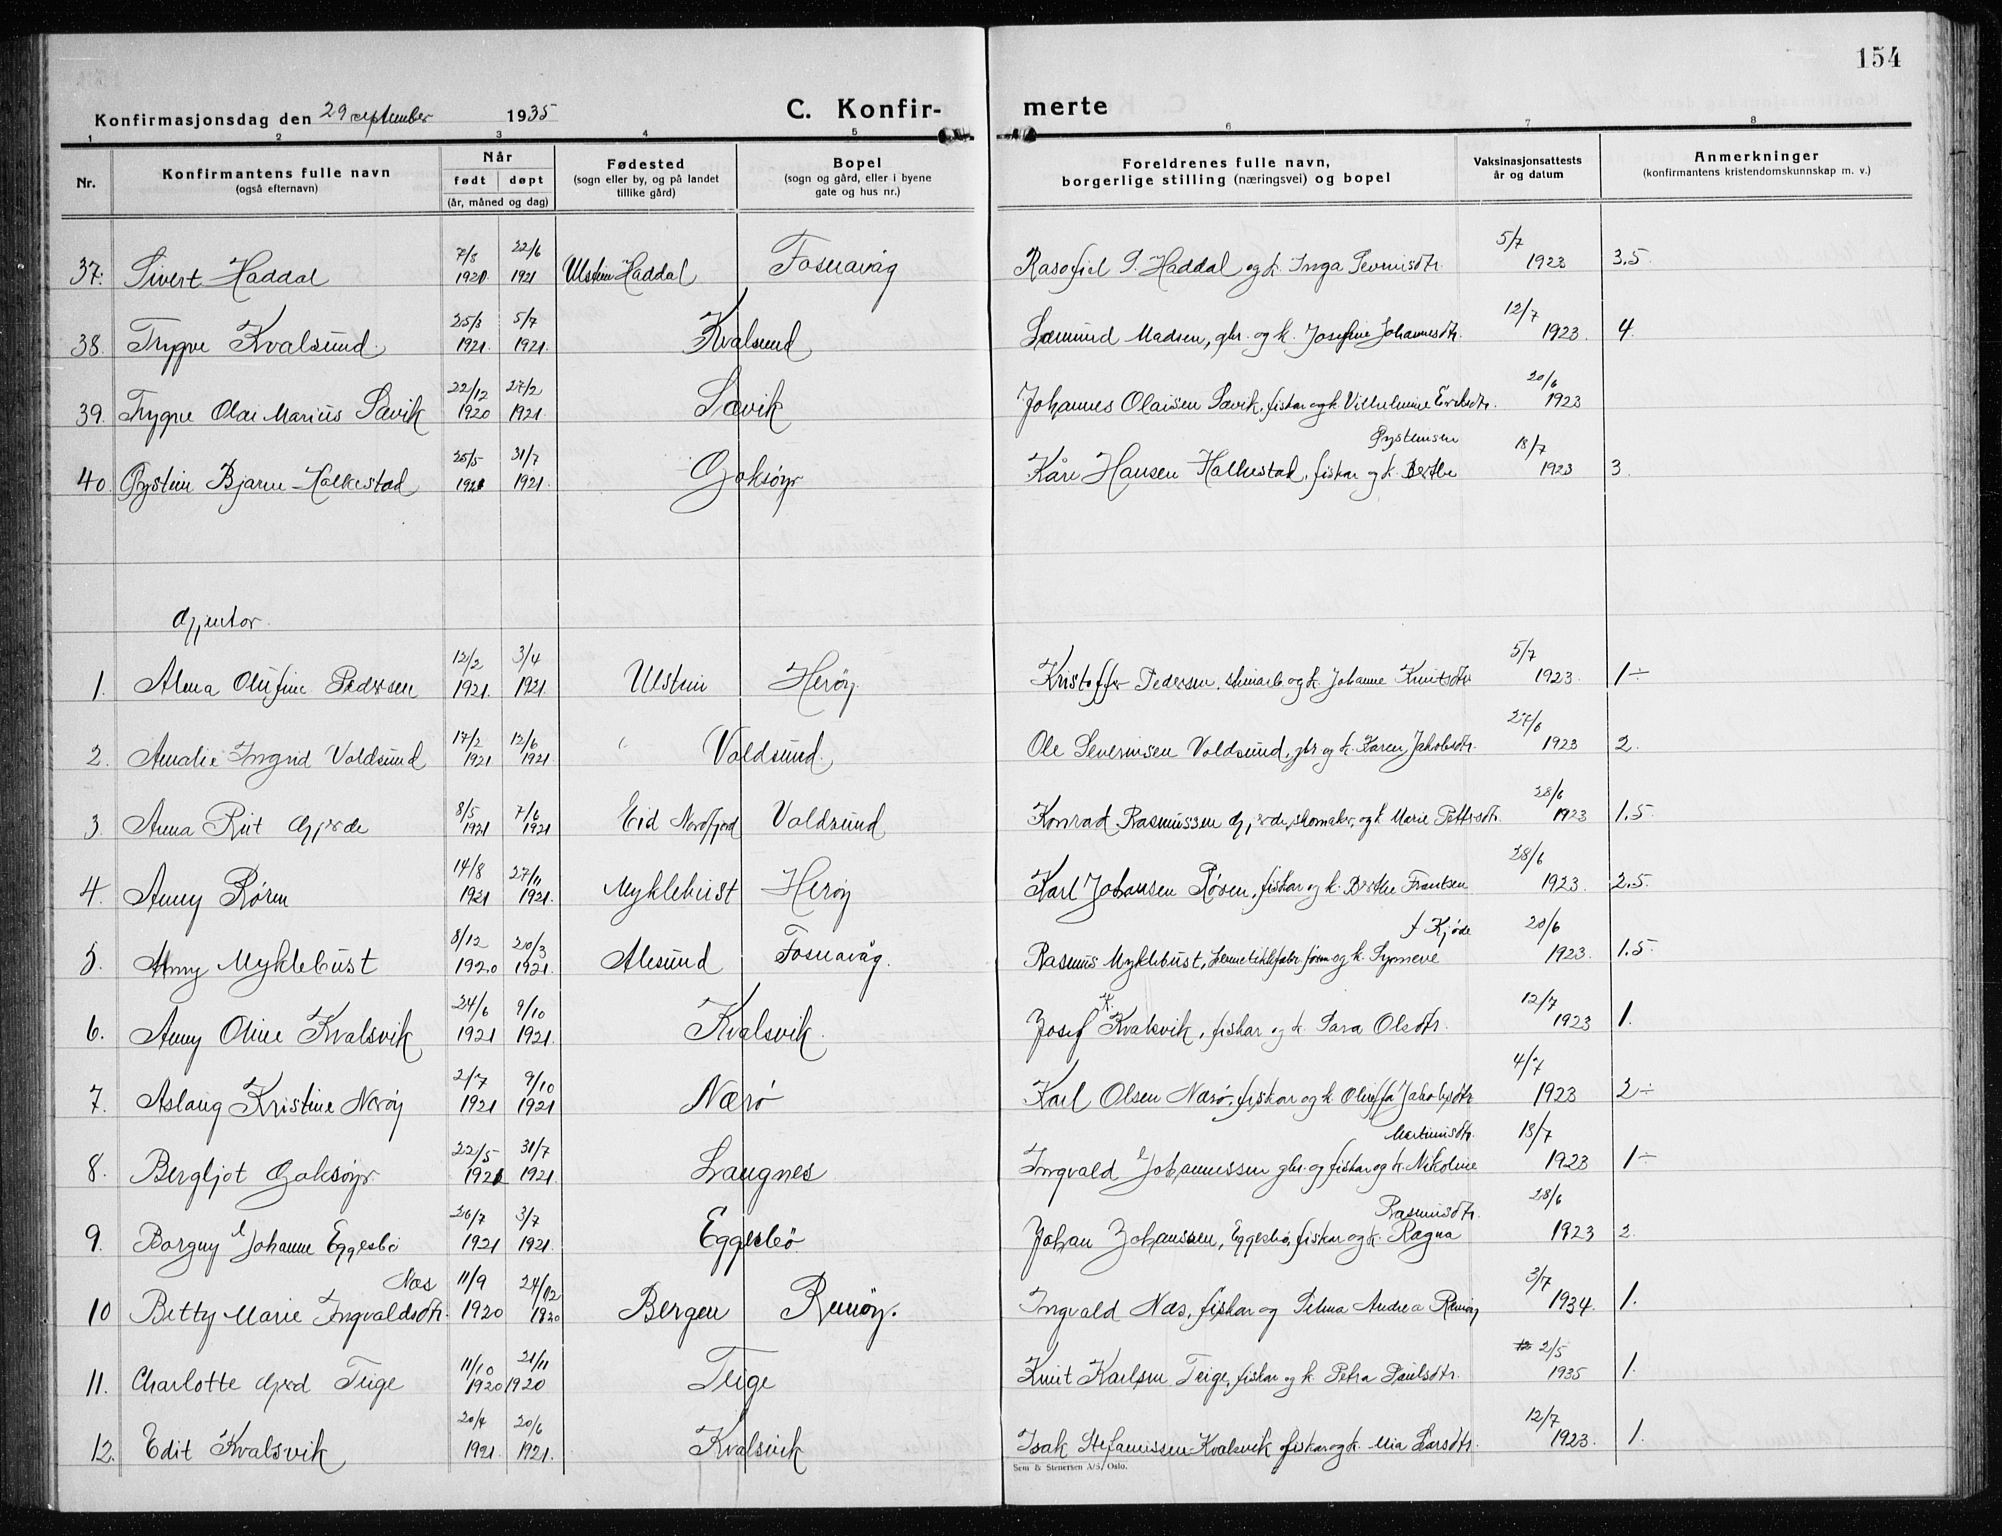 154
Konfirmasjonsdag den 29 september 1935 C. Konfir- merte
1 2 3 4 5 6 7 8
Nr. Konfirmantens fulle navn (også efternavn) Når født døpt (år, måned og dag) Fødested (sogn eller by, og på landet tillike gård) Bopel (sogn og gård, eller i byene gate og hus nr.) Foreldrenes fulle navn, borgerlige stilling (næringsvei) og bopel Vaksinasjonsattests år og datum Anmerkninger (konfirmantens kristendomskunnskap m. v.)
37. Sivert Haddal 1921 22/6 1921 Ulstein Haddal Fosnavåg Haddal og k. Inga 5/7 1923 3.5
38. Trygve Kvalsund 25/3 1921. 5/7 1921. Kvalsund Sæmund Madsen, gbr. og k. Josefine Johannesdtr. 12/7 1923. 4.
39. Trygve Olai Marius Sævik 22/12 1920 27/2 1921 Sævik Johannes Olaisen Sævik, fiskar og k. Vilhelmine Eriksdtr. 20/6 1923
40. Øystein Bjarne Halkestad 25/5 1921 31/7 1921. Goksøyr Kåre Hansen Halkestad, fiskar og k. Berthe Øysteinsen 18/7 1923 3.
Gjentor.
1. Alma Olufine Pedersen 12/2 1921. 3/4 1921. Ulstein Herøy. Kristoffer Pedersen, og k. Johanne Knutsdtr 5/7 1923. 1÷
2. Amalie Ingrid Voldsund 17/2 1921 12/6 1921 Voldsund. Ole Severinsen Voldsund, gbr og k. Karen Jakobsdtr. 27/6 1923 2.
3. Anna Rut Gjerde 8/5 1921 7/6 1921 Eid Nordfjord Voldsund Konrad Rasmussen Gjerde, skomaker, og k Marie Pettersdtr. 28/6 1923 1.5
4. Anny Røren 14/8 1921 27/11 1921. Myklebust Herøy Karl Johansen Røren, fiskar og k. Berthe Frantsen 28/6 1923. 2.5.
5. Anny Myklebust 8/12 1920 20/3 1921. Ålesund Fosnavåg. Rasmus Myklebust, og k. Synneve f Kjøde 20/6 1923. 1.5
6. Anny Oline Kvalsvik 24/6 1921 9/10 1921. Kvalsvik. Josef K. Kvalsvik, fiskar og k. Sara Olsdtr. 12/7 1923 1.
7. Aslaug Kristine Nerøy 2/7 1921 9/10 1921 Nærø Karl Olsen Nærø, fiskar og k. Oluffa Jakobsdtr 4/7 1923 2÷
8. Bergljot Goksøyr 22/5 1921 31/7 1921. Laugnes Ingvald Johannessen gbr. og fiskar og k. Nikoline Martinusdtr. 18/7 1923 1÷
9. Borgny Johanne Eggesbø 26/7 1921 3/7 1921. Eggesbø Johan Johanssen, Eggesbø, fiskar og k. Ragna Rasmusdtr. 28/6 1923 2.
10 Betty Marie Ingvaldsdtr. Næs 11/9 1920 24/12 1920 Bergen Remøy. Ingvald Næs, fiskar og Selma Andrea Remøy 3/7 1934. 1.
11. Charlotte Gjerd Teige 11/10 1920 21/11 1920 Teige Knut Karlsen Teige, fiskar og k. Petra Paulsdtr. 2/5 1935 1.
12. Edit Kvalsvik 20/4 1921. 20/6 1921. Kvalsvik Isak Stefanussen Kvalsvik fiskar og k. Mia Larsdtr. 12/7 1923. 1.
Sem & Stenersen A/S, Oslo.